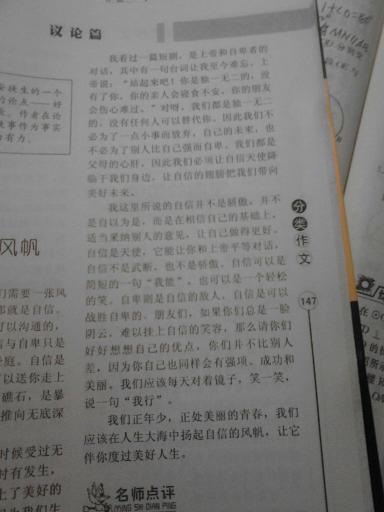 议论篇
我看过一篇短剧，是上帝和自卑者的
对话，其中有一句台词让我至今难忘，上
帝说：“站起来吧！你是独一无二的，没
有了你，你的亲人会寝食不安，你的朋友
会伤心难过。”对呀，我们都是独一无二
的，没有任何人可以替代你。因此我们不
必为了一点小事而放弃，自己的未来，也
不必为了别人比自己强而自卑，我们都是
父母的心肝，因此我们必须让自信天使降
临于我们身边，让自信的翅膀把我们带向
美好未来。
我这里所说的自信并不是骄傲，并不
是自以为是，而是在相信自己的基础上，
适当采纳别人的意见，让自己做得更好。
自信是天使，它能让你和上帝平等对话，
自信不是武断，也不是骄傲。自信可以是
简短的一句“我能”，也可以是一个轻松
的笑。自卑则是自信的敌人，自信是可以
战胜自卑的。朋友们，如果你们总是一脸
阴云，难以挂上自信的笑容，那么请你们
好好想想自己的优点，你们并不比别人
差，因为你自己也同样会有强项、成功和
美丽。我们应该每天对着镜子，笑一笑，
说一句“我行”。
我们正年少，正处美丽的青春，我们
应该在人生大海中扬起自信的风帆，让它
伴你度过美好人生。
名师点评
MING SHI DIAN PING
分类作文
147
生的一个
的论点——好
作者在论
事作为事实
有力。
风帆
们需要一张风
那就是自信。
可以沟通的，
信与自卑只是
自信是
以送你走上
礁石，是暴
推向无底深
时候受过无
时有发生，
上了美好的